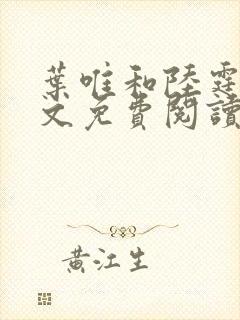 葉唯和陸霆
文免費閱讀
黃江生